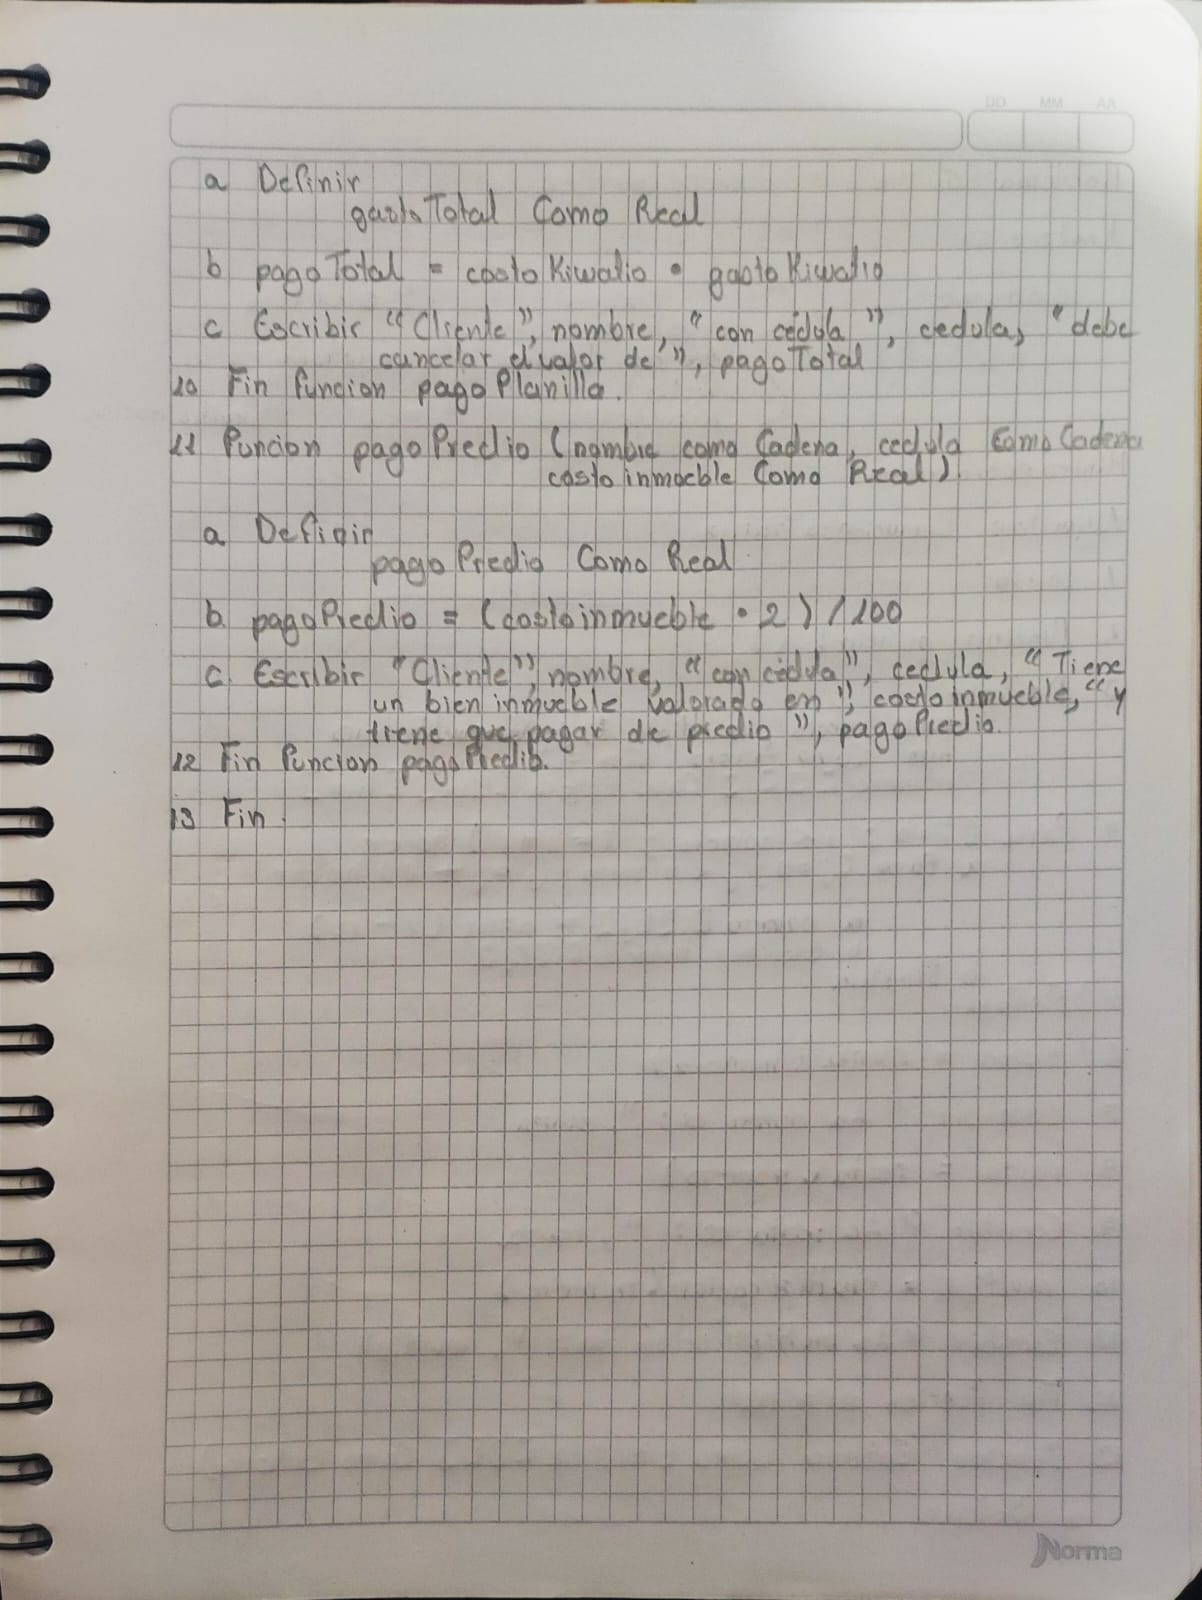 DD MM AA
a Definir
gastoTotal Como Real
b pagoTotal = costoKiwatio • gastoKiwatio
c Escribir "Cliente", nombre, "con cédula", cedula, "debe
cancelar el valor de", pagoTotal
10 Fin funcion pagoPlanilla.
11 Funcion pagoPredio (nombre como Cadena, cedula Como Cadena
costoinmueble Como Real).
a Definir
pagoPredio Como Real
b. pagoPredio = (costoinmueble • 2) / 100
c. Escribir "Cliente", nombre, "con cédula", cedula, "Tiene
un bien inmueble valorado en", costoinmueble, "y
tiene que pagar de predio", pagoPredio.
12 Fin funcion pagoPredio.
13 Fin.
Norma